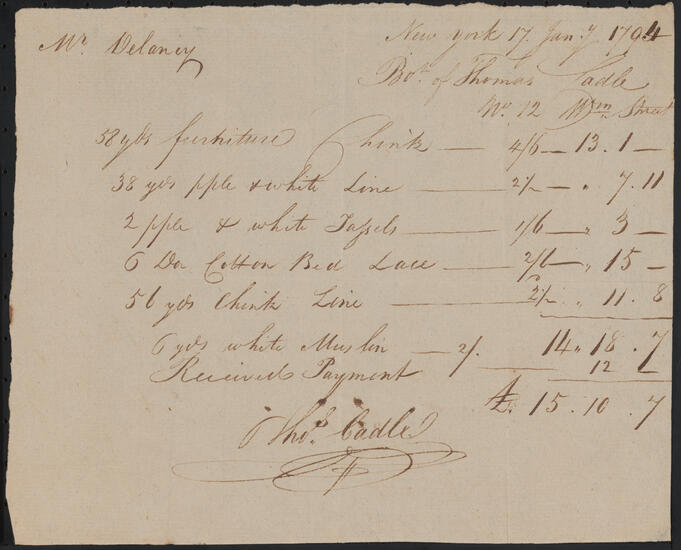 Mr. Delancy New York 17 Jany 1794
Bot. of Thomas Cadle
No. 12 Wm. Street
58 yds furniture Chink — 4/6 — 13. 1 —
38 yds pple & white Line — 2½ — " 7. 11
2 pple & white Tassels — 1/6 — " 3 —
6 Doz Cotton Bed Lace — 2/6 — " 15 —
56 yds Chink Line — 2½ — " 11. 8
14 " 18. 7
6 yds white Muslin — 2/. — 12 —
Received Payment £. 15. 10. 7
Thos. Cadle